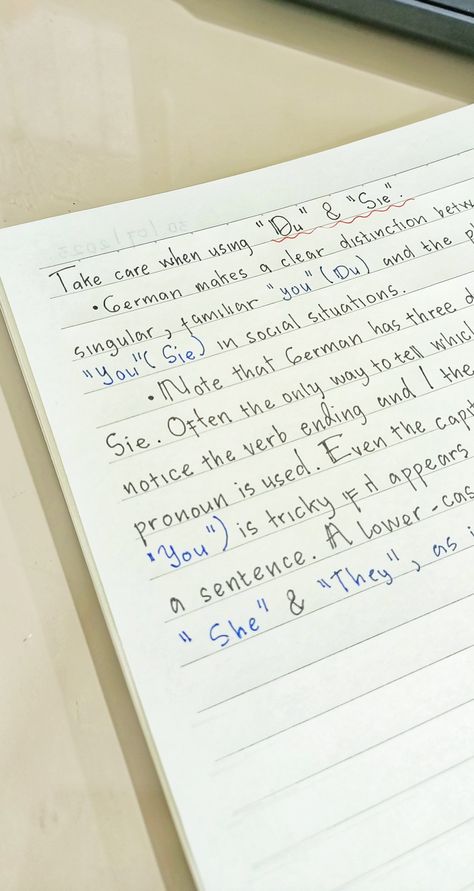 Take care when using "Du" & "Sie".
• German makes a clear distinction betw
singular, familiar "you" (Du) and the p
"You" (Sie) in social situations.
• Note that German has three d
Sie. Often the only way to tell whic
notice the verb ending and / the
pronoun is used. Even the capt
"You") is tricky if it appears
a sentence. A lower-cas
"She" & "They", as i